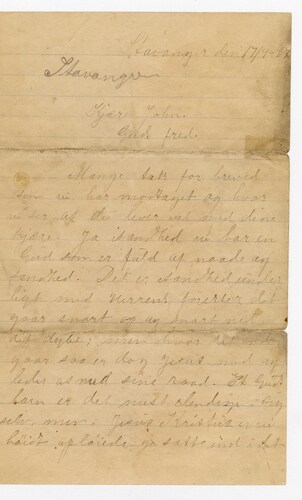 Stavanger den 17/
Stavanger
Kjære John.
Guds fred.
Mange tak for brevid
som vi har modtaget og hvor
vi ser at du lever vel med dine
kjære. Ja isandhed vi har en
Gud som er fuld af naade og
sandhed. Det er isandhed under
ligt med Herrens forester det
gaar snart op og snart ned
det dybe; men hvor det
gaar saa er dog Jesus med og
leder os med sine raad. Et Guds
barn er det mest elendige i sig
selv, men i Jesus Kristus er vi
høidt opløiede og satte ind i